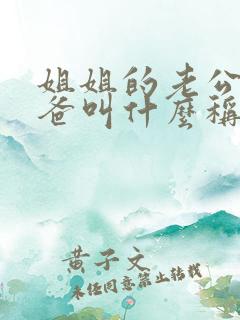 姐姐的老公
爸叫什麽稱
黄子文
未经同意禁止转载